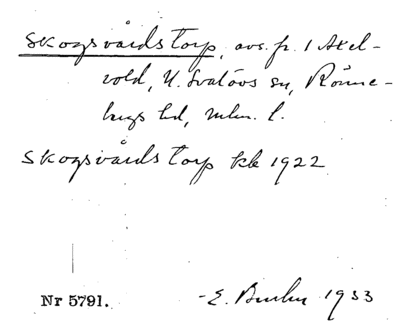 Skogsvårdstorp, avs. fr. 1 Axel-
vold, N. Svalövs sn, Rönne-
bergs hd, Mlm. l.
Skogsvårdstorp kk 1922
Nr 5791.
E. 1933